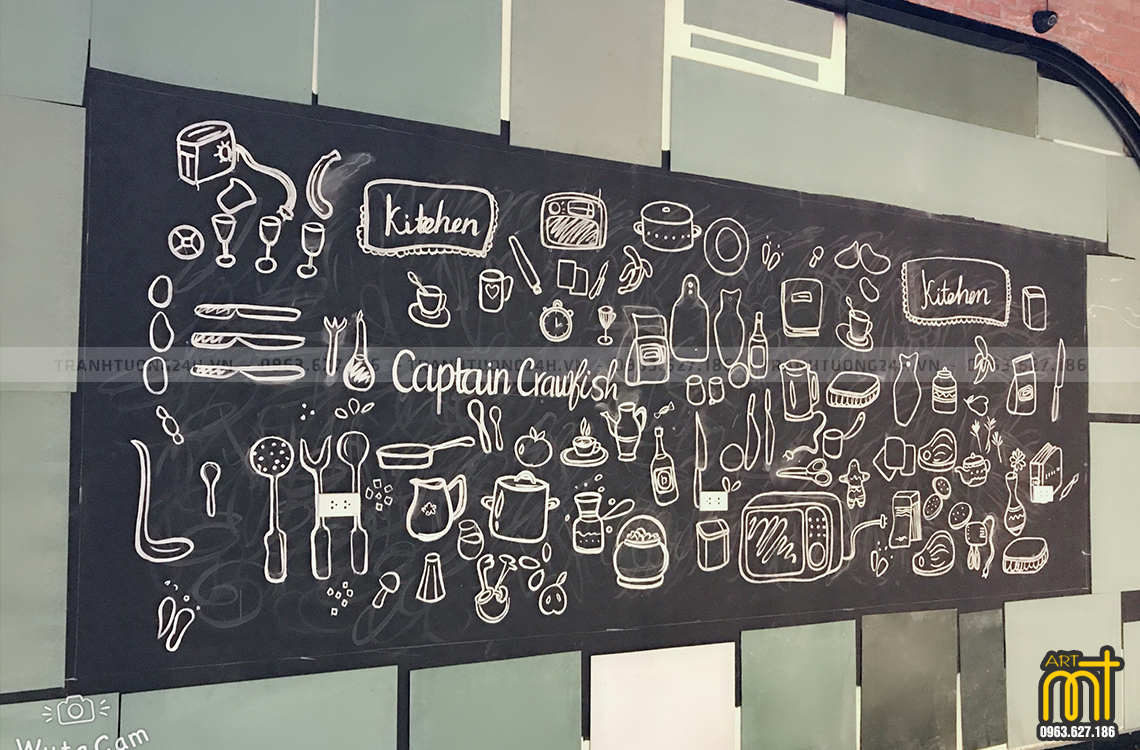 Kitchen
Kitchen
TRANHTUONG24H.VN - 0963.627.186 TRANHTUONG24H.VN - 0963.627.186 TRANHTUONG24H.VN - 0963.627.186
Captain Crawfish
b
ART
mt
0963.627.186
Wuta Cam